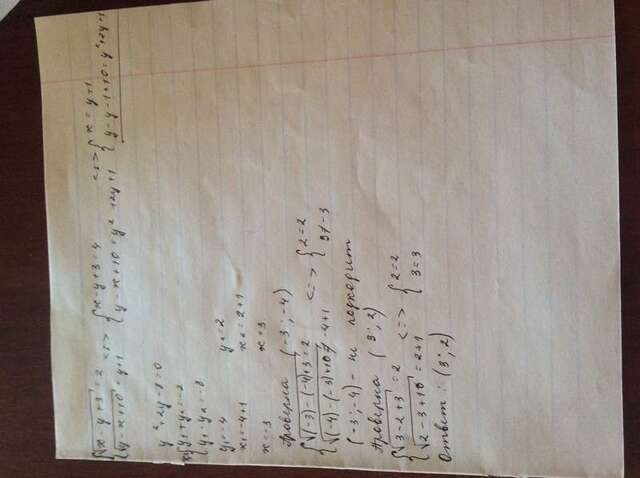 {√x-y+3 = 2 <=> {x-y+3=4 <=> {x = y+1
{√y-x+10 = y+1 {y-x+10=y²+2y+1 {y-y-1+10=y²+2y+1
y²+2y-8=0
{y₁+y₂=-2
{y₁·y₂=-8
y₁=-4 y₂=2
x₁=-4+1 x₂=2+1
x=-3 x=3
Проверка (-3; -4)
{√(-3)-(-4)+3=2 <=> {2=2
{√(-4)-(-3)+10≠-4+1 {3≠-3
(-3; -4) - не подходит
Проверка (3; 2)
{√3-2+3 = 2 <=> {2=2
{√2-3+10 = 2+1 {3=3
Ответ: (3; 2)